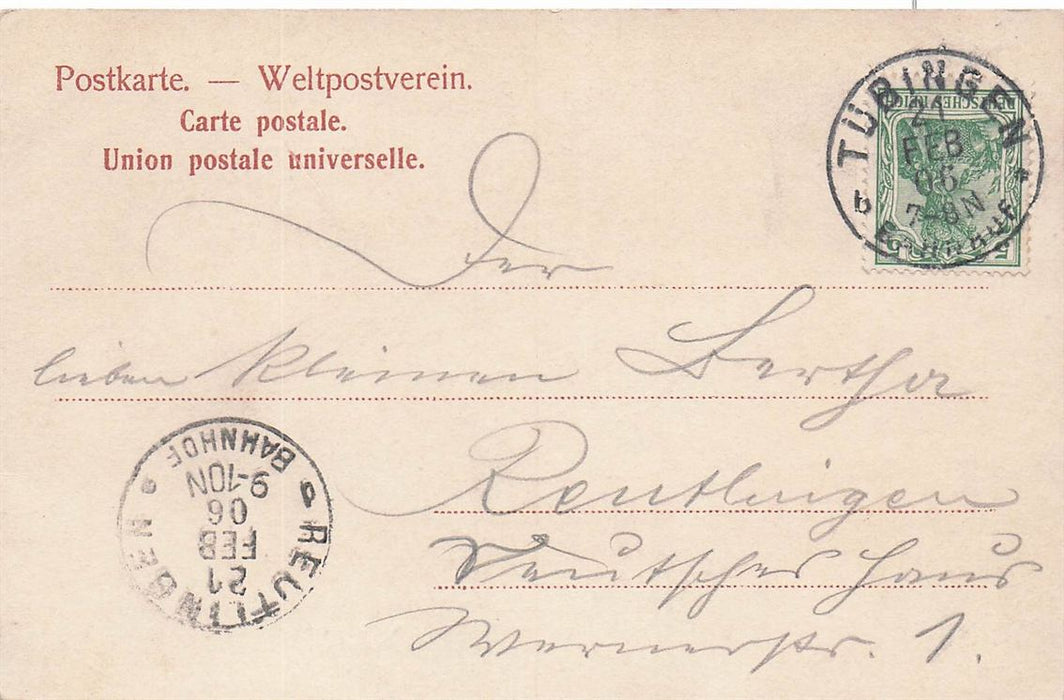 Postkarte. — Weltpostverein.
Carte postale.
Union postale universelle.
TÜBINGEN
21
FEB
06
7-8N
b BAHNHOF
DEUTSCHES REICH
5
Der
lieben kleinen Bertha
Reutlingen
Deutsches Haus
Wernerstr. 1.
REUTLINGEN
21
FEB
06
9-10N
BAHNHOF